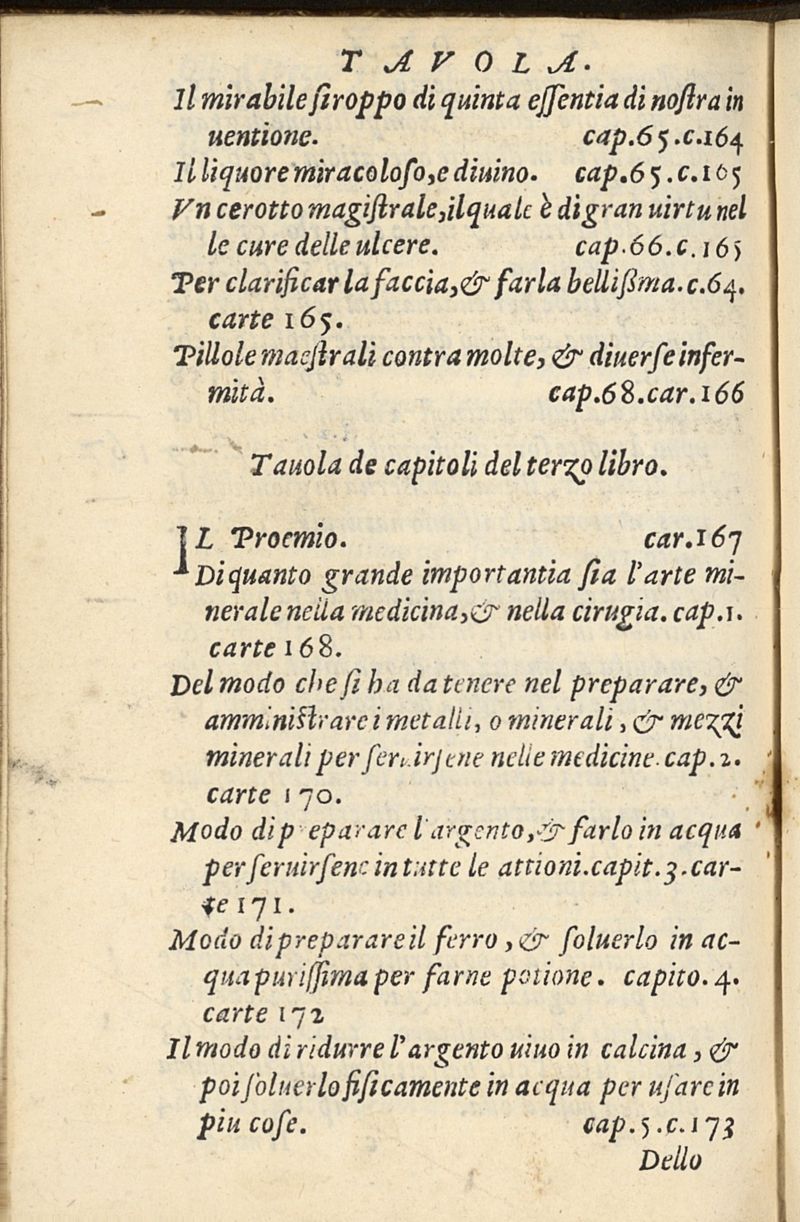 TAVOLA.
Il mirabile siroppo di quinta essentia di nostra in
uentione. cap.65.c.164
Il liquore miracoloso,e diuino. cap.65.c.165
Vn cerotto magistrale,ilquale è di gran uirtu nel
le cure delle ulcere. cap.66.c.165
Per clarificar la faccia,& farla bellißma.c.64.
carte 165.
Pillole maestrali contra molte, & diuerse infer-
mità. cap.68.car.166
Tauola de capitoli del terzo libro.
IL Proemio. car.167
Di quanto grande importantia sia l'arte mi-
nerale nella medicina,& nella cirugia. cap.1.
carte 168.
Del modo che si ha da tenere nel preparare, &
amministrare i metalli, o minerali, & mezzi
minerali per seruirsene nelle medicine.cap.2.
carte 170.
Modo di preparare l'argento,& farlo in acqua
per seruirsene in tutte le attioni.capit.3.car-
te 171.
Modo di preparare il ferro, & soluerlo in ac-
qua purissima per farne potione. capito.4.
carte 172
Il modo di ridurre l'argento uiuo in calcina, &
poi soluerlo fisicamente in acqua per usare in
piu cose. cap.5.c.173
Dello